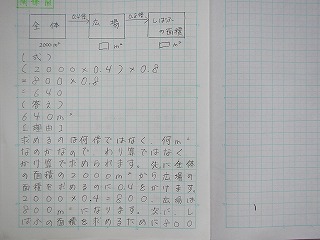 全体 0.4倍 広場 0.8倍 しばふの面積
2000m² □m² □m²
(式)
(2000×0.4)×0.8
=800×0.8
=640
(答え)
640m²
(理由)
求めるのは何倍ではなく、何m²
なのかなので、わり算ではなく
かけ算で求められます。先に全体
の面積の2000m²から広場の
面積を求めるのに0.4をかけます。
2000×0.4=800 広場は
800m²になります。次に、し
ばふの面積を求めるために800